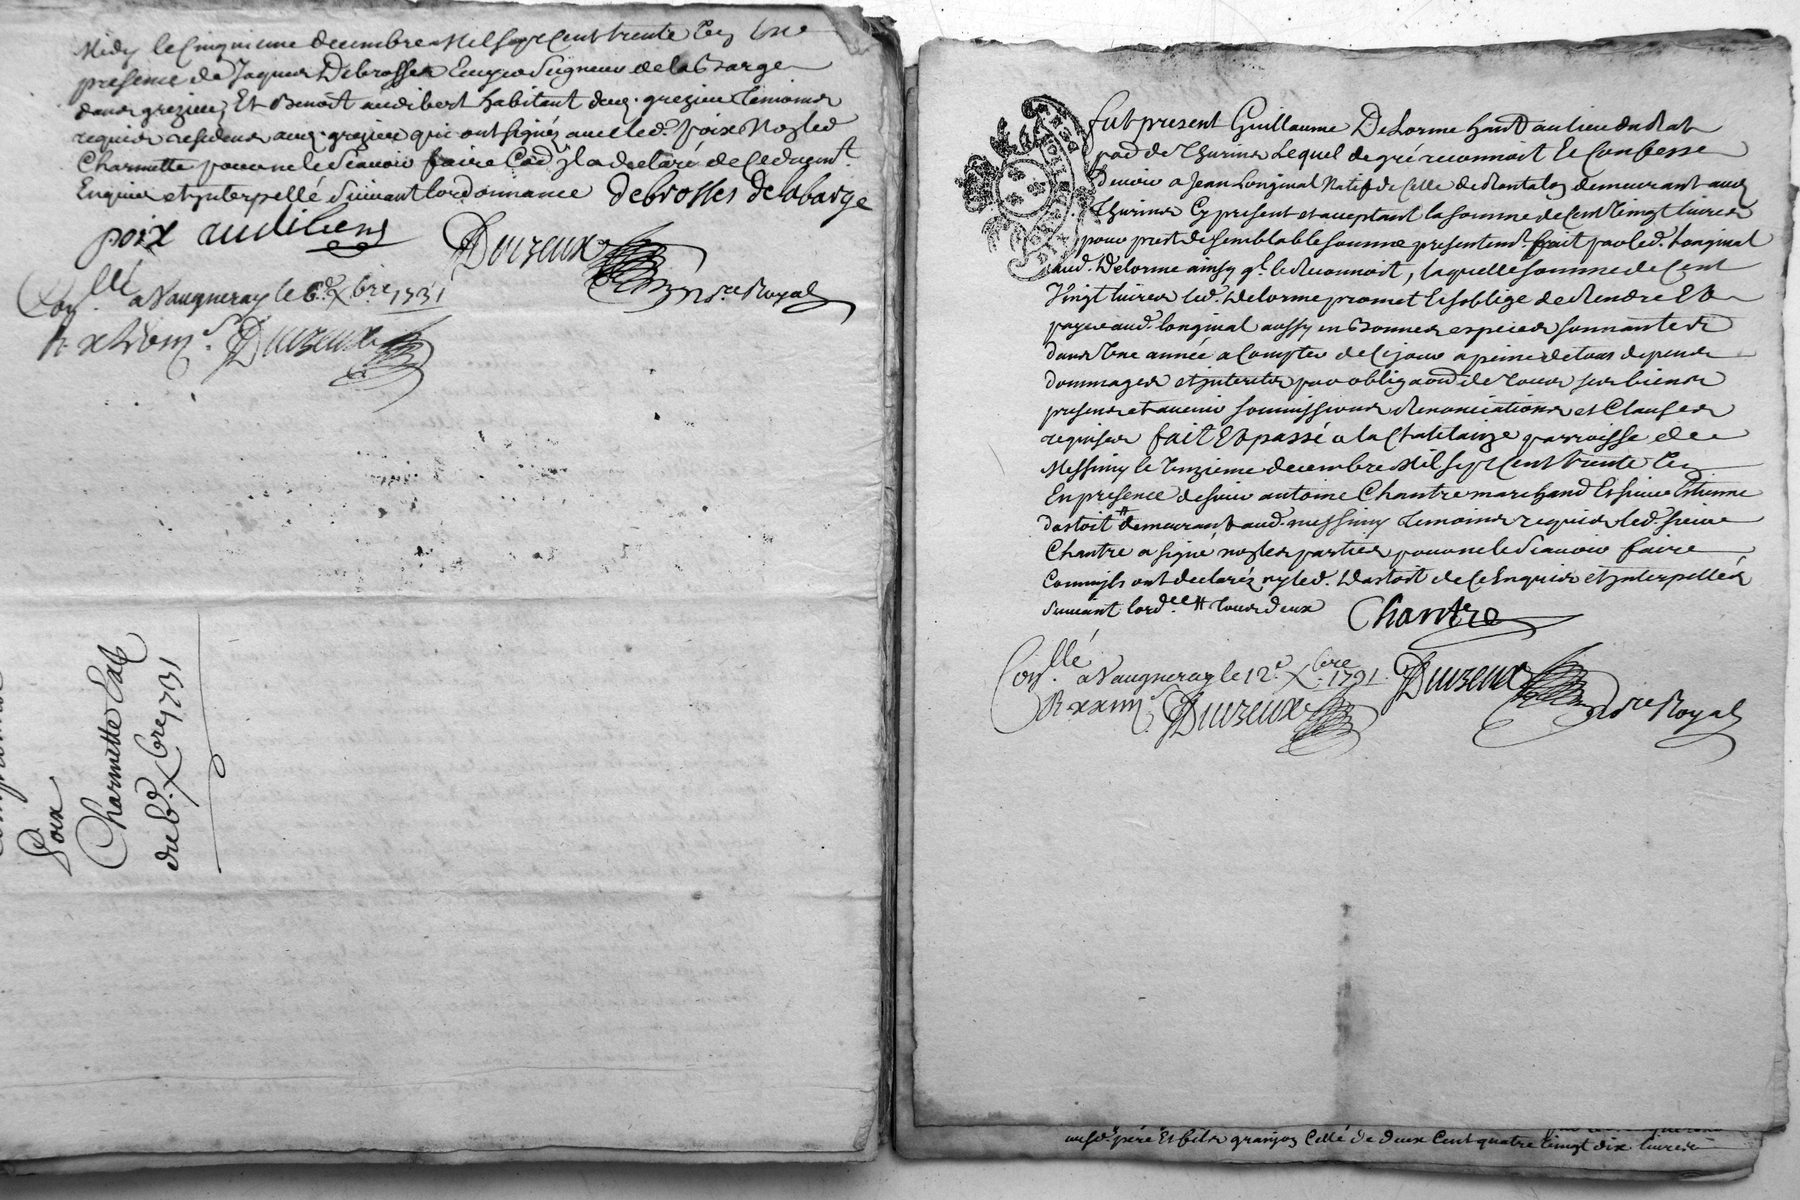 Midy le cinquieme decembre Mil sept cent trente
presence de Jaques Debrosses Ecuyer Seigneur de la Barge
dans grezieu, Et Benoit audibert habitant aud. grezieu Temoins
requis residens aud. grezieu qui ont signés avec led. poix Non led
Charmette pour ne le scavoir faire Co͞e Il a declaré de ce duement
Enquis et interpellé suivant lordonnance debrosses delabarge
poix audibert
Duizeux
nore Royal
Conllé a Vaugneray le 6e Xbre 1731
Duizeux
Poix
Charmette
du 5e Xbre 1731
fut present Guillaume Delorme habt au lieu du
de Thurins Lequel de gré reconnoit Et Confesse
Devoir a Jean Longinal Natif de Celle de Rontalon demeurant aud
Thurins Cy present et acceptant la somme de Cent vingt livres
pour prest de semblable somme presentemt fait par led. Longinal
aud. Delorme ainsy ql le Reconnoit, laquelle somme de Cent
Vingt livres led. Delorme promet Et soblige de Rendre Et
payer aud. longinal aussy en Bonnes especes sonnantes
dans Une année a Compter de Ce jour a peine de tous depens
dommages et interets par obligaon de tous ses biens
presens et avenir soumissions Renonciations et Clauses
requises fait Et passé a la Chatelaize parroisse de
Messimy le unzieme decembre Mil sept Cent trente
En presence de sieur antoine Chantre marchand Et sieur Estienne
dastoit # demeurant aud. messimy Temoins requis led. sieur
Chantre a signé, non les parties pour ne le scavoir faire
Comm'ils ont declaréz ny led. Dastoit de Ce Enquis et interpellés
suivant lord.ce # tous deux
Chantre
Conllé a Vaugneray le 12e Xbre 1731
Duizeux
nore Royal
R xxiiii s. Duizeux
ausd. pere Et fils granjon Celle de deux Cent quatre vingt dix livres